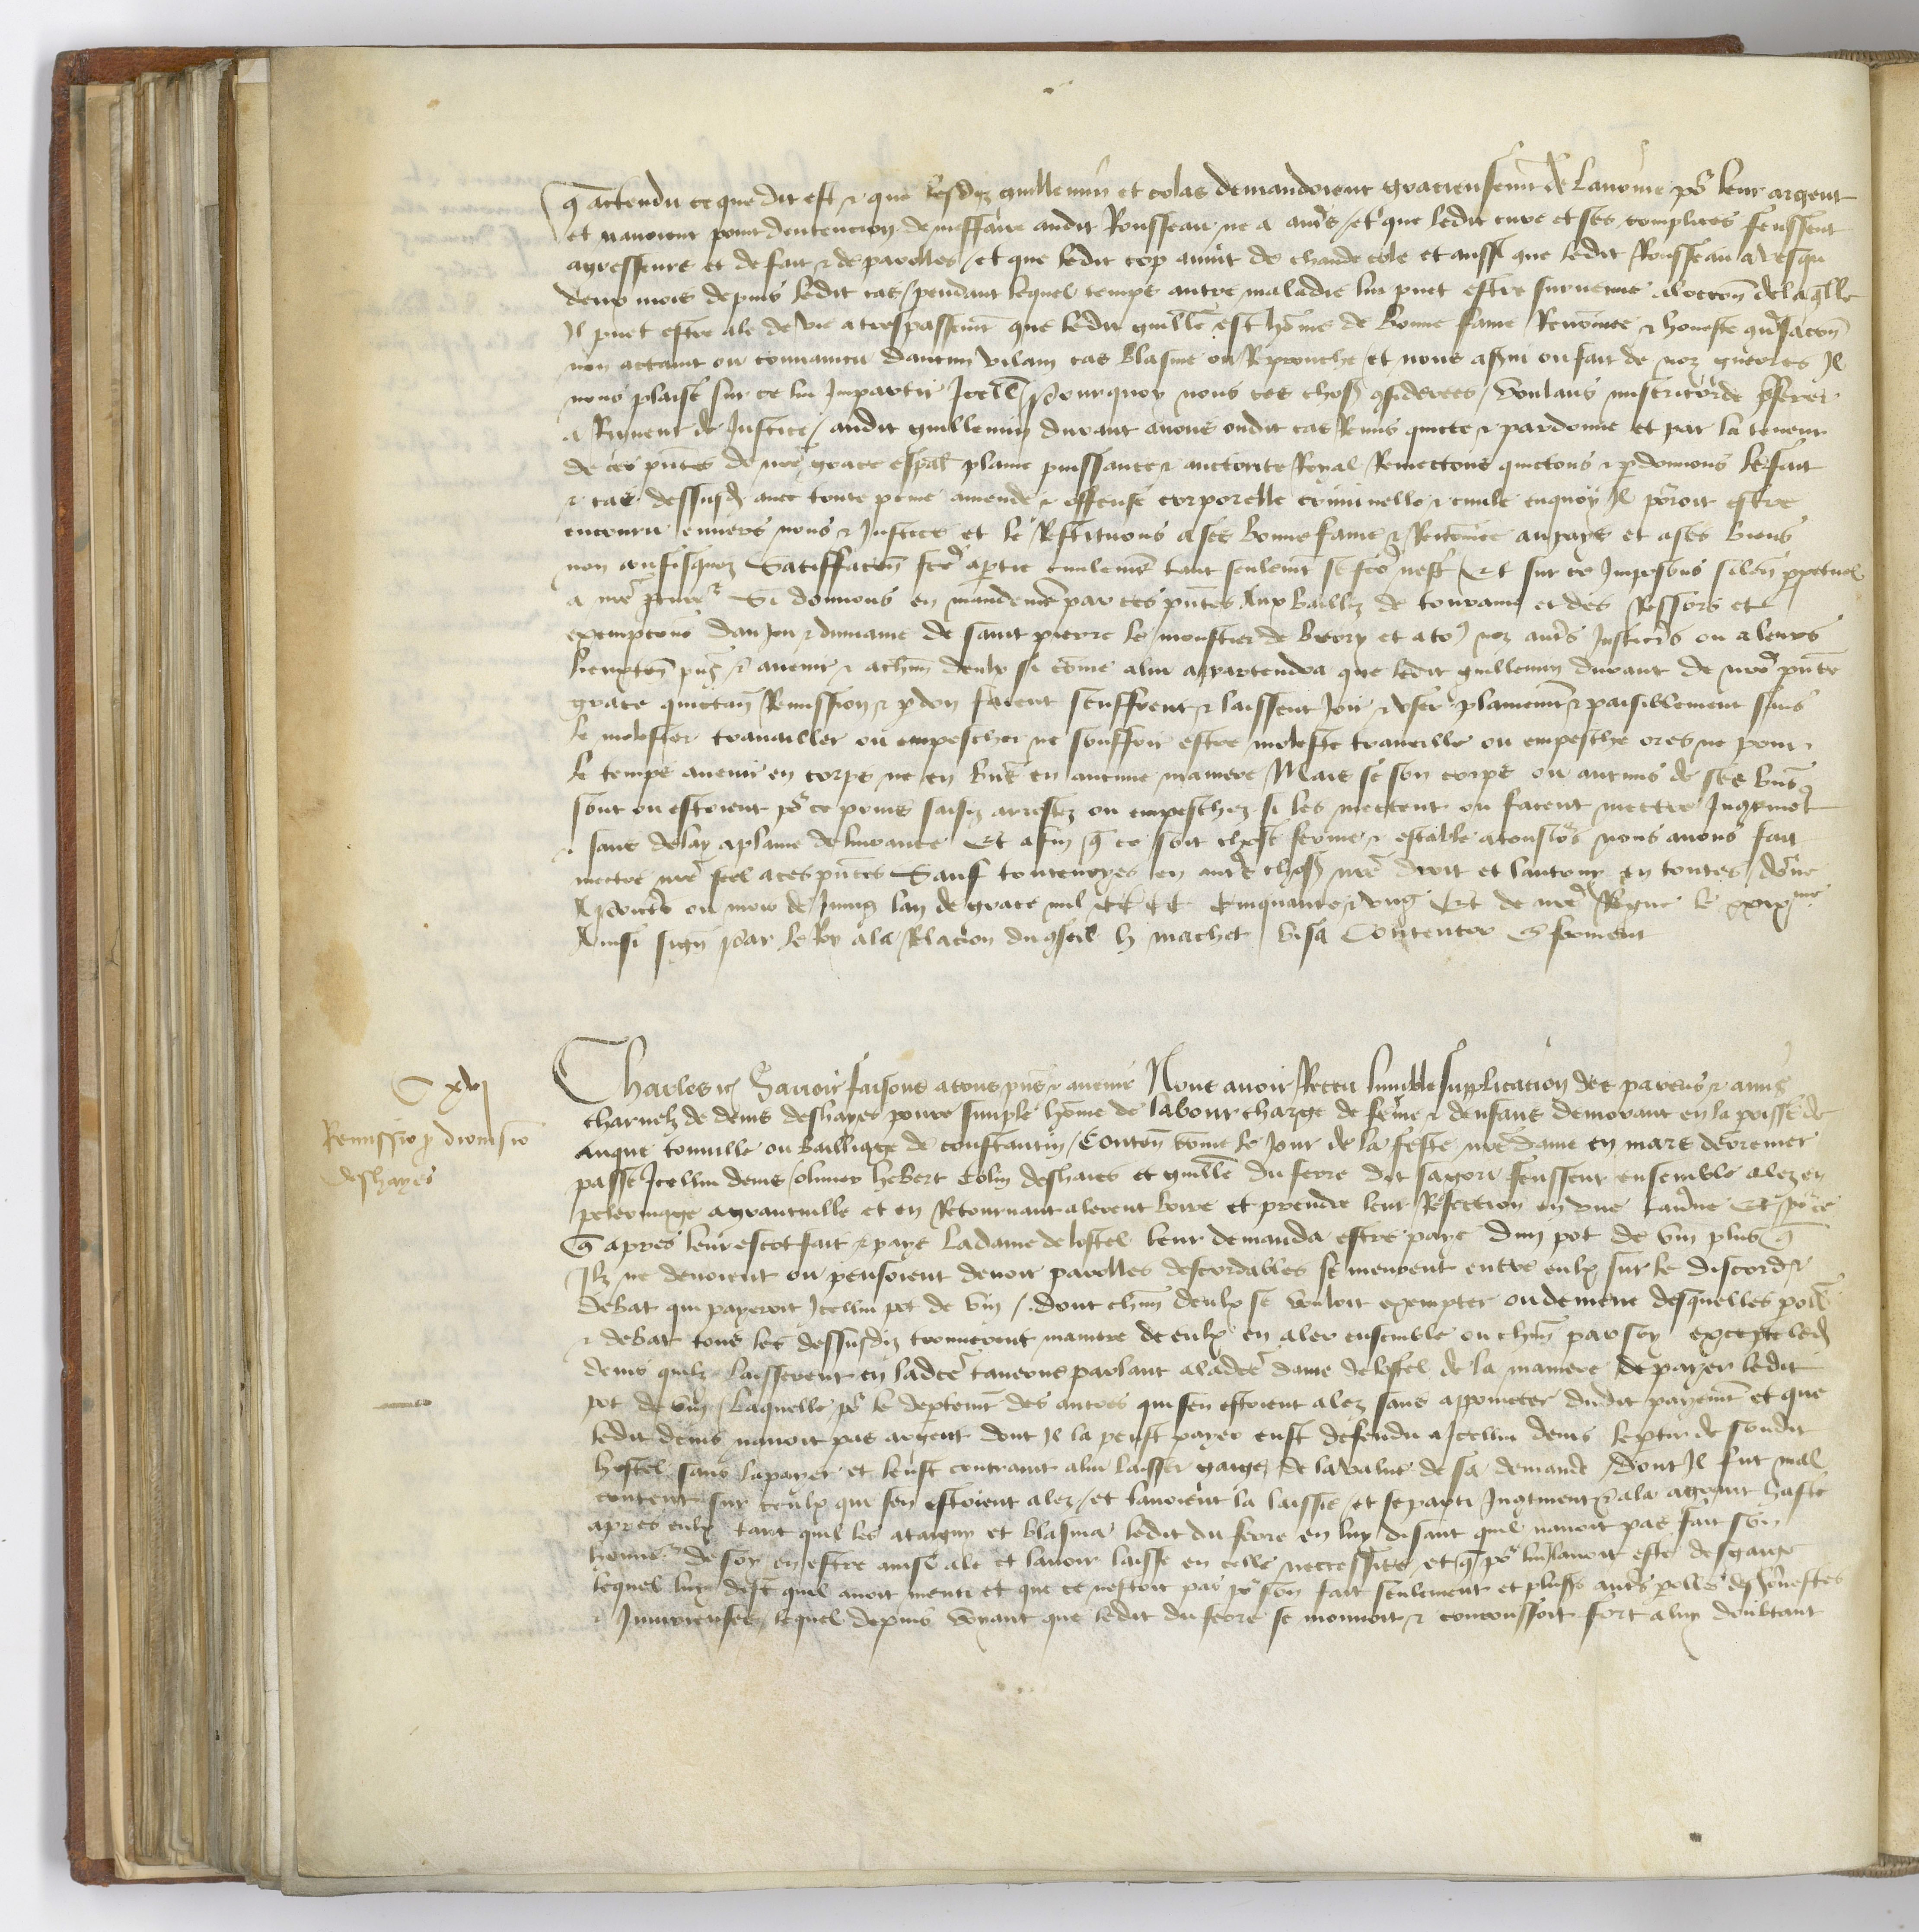 q actendu ce que dit est et que lesdiz guillemin et colas demandoient gracieusemt de lavoine po leur argent
et navoient point dentencion de meffaire audit Rousseau ne a autrs / et que ledit cure et ses complices feussent
agresseurs et de fait et de parolles / et que ledit cop avint de chaude cole et aussi que ledit Rousseau a vesqu
deux mois depuis ledit cas / pendant lequel temps autre maladie lui puet estre survenue a loccon de laqlle
Il puet estre ale de vie a trespassemt que ledit guille est home de bonne fame Renomee et honeste gversacon
non actaint ou convaincu daucun vilain cas blasme ou Reprouche / et nous a servi ou fait de noz guerres Il
nous plaise sur ce lui Impartir Icelle / Pourquoy nous ces choses gsiderees / voulans misericorde pferer
a Rigueur de Justice / audit guillemin durant avons oudit cas Remis quicte et pardonne et par la teneur
de ces pntes de nre grace espal plaine puissance et auctorite Royal Remectons quictons et pdonnons le fait
et cas dessusd avec toute peine amende et offense corporelle criminelle et civile enquoy Il poroit estre
encouru envers nous et Justice et le Restituons a ses bonne fame et Renomee au pays et a ses biens
non confisquez Satiffacon fce a ptie civilemt tant seulemt se fce nest Et sur ce Imposons silen ppetuel
a nre procur Si donnons en mandemt par ces pntes Aux bailliz de touraine et des Ressors et
exempcons danjou et du maine de saint pierre le moustier de berry et a to noz autrs Justiciers ou a leurs
lieuxten pns et avenir et a chun deulx si come a lui appartendra que ledit guillemin durant de nre pnte
grace quictan Remission et pdon facent seuffrent et laissent Joir et user plainemt et paisiblement sans
le molester travailler ou empescher ne souffrir estre moleste traveille ou empesche ores ne pour
le temps avenir en corps ne en biens en aucune maniere Mais se son corps ou aucuns de ses biens
sont ou estoient po ce prins saisiz arrestez ou empeschez si les mectent ou facent mectre Ingtinent
et sans delay a plaine delivrance Et afin q ce soit chose ferme et estable a tousios nous avons fait
mectre nre scel a ces pntes Sauf toutesvoyes en autre chose nre droit et lautruy en toutes / done
A poictrs ou mois de Juing lan de grace mil CCCC Cinquante et ung Et de nre Regne le xxixme
Ainsi signe Par le Roy a la Relacion du gseil h machet visa Contentor E froment
Cxvj
Remissio p dionisio
deshayes
Charles etc Savoir faisons a tous pns et avenir Nous avoir Receu lumble supplicacion des parens et amis
charnelz de denis deshayes povre simple home de labour charge de feme et denfans demorant en la poisse de
auque touville ou bailliage de coustantin / Conten come le Jour de la feste nre dame en mars derremer
passe Icellui denis / olivier hebert Colin deshaies et guille du fevre dit sagori feussent ensemble alez en
pelerinage a grantville et en Retournant alerent boire et prendre leur Refection en une taverne Et po ce
q apres leur escot fait et paye La dame de lostel leur demanda estre paye dun pot de vin plus q
Ilz ne devoient ou pensoient devoir parolles descordables se meurent entre eulx sur le discord et
debat qui payeroit Icellui pot de vin / dont chun deulx se vouloit exempter oudemene desquelles polls
et debat tous les dessusdiz trouverent maniere de eulx en aler ensemble ou chun par soy excepte led
denis quilz laisserent en ladce taverne parlant a ladce dame de lostel de la maniere de payer ledit
pot de vin / Laquelle po le deptemt des autres qui sen estoient alez sans appointer dudit payemt et que
ledit denis navoit pas argent dont Il la peust payer eust defendu a Icellui denis le ptir de sondit
hostel sans la payer et leust contraint a lui laisser gaige de la value de sa demande / dont Il fut mal
content sur ceulx qui sen estoient alez / et lavoient la laissie / et se parti Ingtinent et ala a grant haste
apres eulx tant quil les ataigny et blasma ledit du fevre en luy disant quil navoit pas fait son
honneur de soy en estre ainsi ale et lavoir laisse en celle neccessite et q po lui lavoit este desgaige
lequel luy dist quil avoit menti et que ce nestoit pas po son fait seulement et pluss autrs polles deshonnestes
et Injurieuses / lequel depuis voyant que ledit du fevre se mouvoit et courroussoit fort a luy doubtant